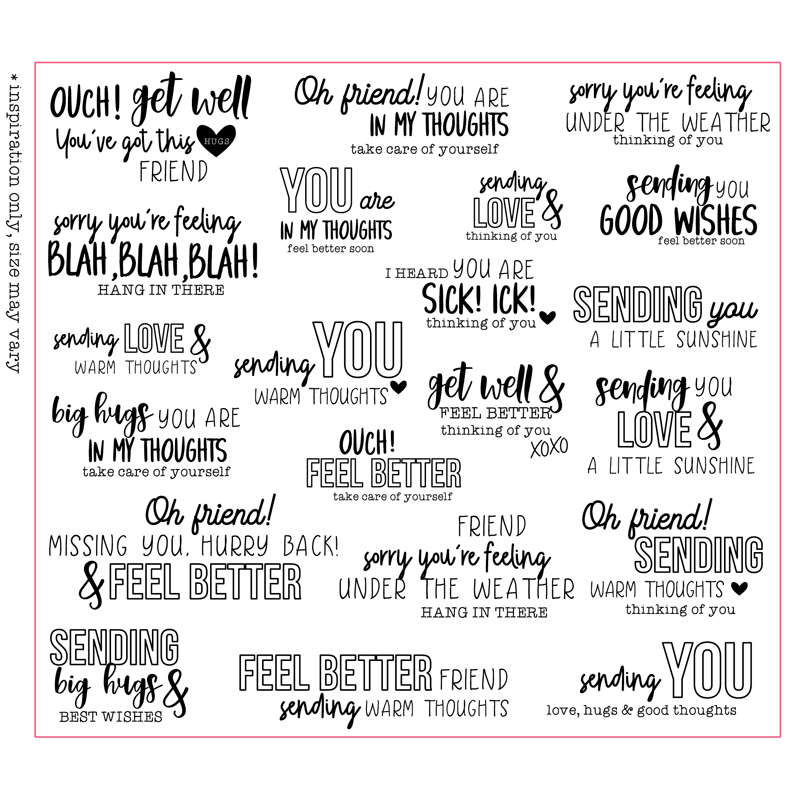 * inspiration only, size may vary
OUCH! get well
You've got this HUGS
FRIEND
Oh friend! YOU ARE
IN MY THOUGHTS
take care of yourself
sorry you're feeling
UNDER THE WEATHER
thinking of you
YOU are
IN MY THOUGHTS
feel better soon
sending
LOVE &
thinking of you
sending YOU
GOOD WISHES
feel better soon
sorry you're feeling
BLAH,BLAH,BLAH!
HANG IN THERE
I HEARD YOU ARE
SICK! ICK!
thinking of you
SENDING you
A LITTLE SUNSHINE
sending LOVE &
WARM THOUGHTS
sending YOU
WARM THOUGHTS
get well &
FEEL BETTER
thinking of you
XOXO
sending YOU
LOVE &
A LITTLE SUNSHINE
big hugs YOU ARE
IN MY THOUGHTS
take care of yourself
OUCH!
FEEL BETTER
take care of yourself
Oh friend!
MISSING YOU, HURRY BACK!
& FEEL BETTER
FRIEND
sorry you're feeling
UNDER THE WEATHER
HANG IN THERE
Oh friend!
SENDING
WARM THOUGHTS
thinking of you
SENDING
big hugs &
BEST WISHES
FEEL BETTER FRIEND
sending WARM THOUGHTS
sending YOU
love, hugs & good thoughts